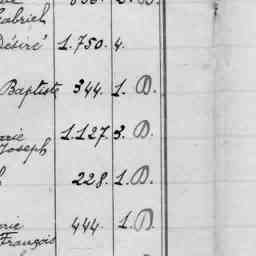 Gabriel
Désiré 1.750. 4.
Baptiste 344. 1. D.
1.127. 3. D.
Joseph
228. 1. D.
444. 1. D.
François